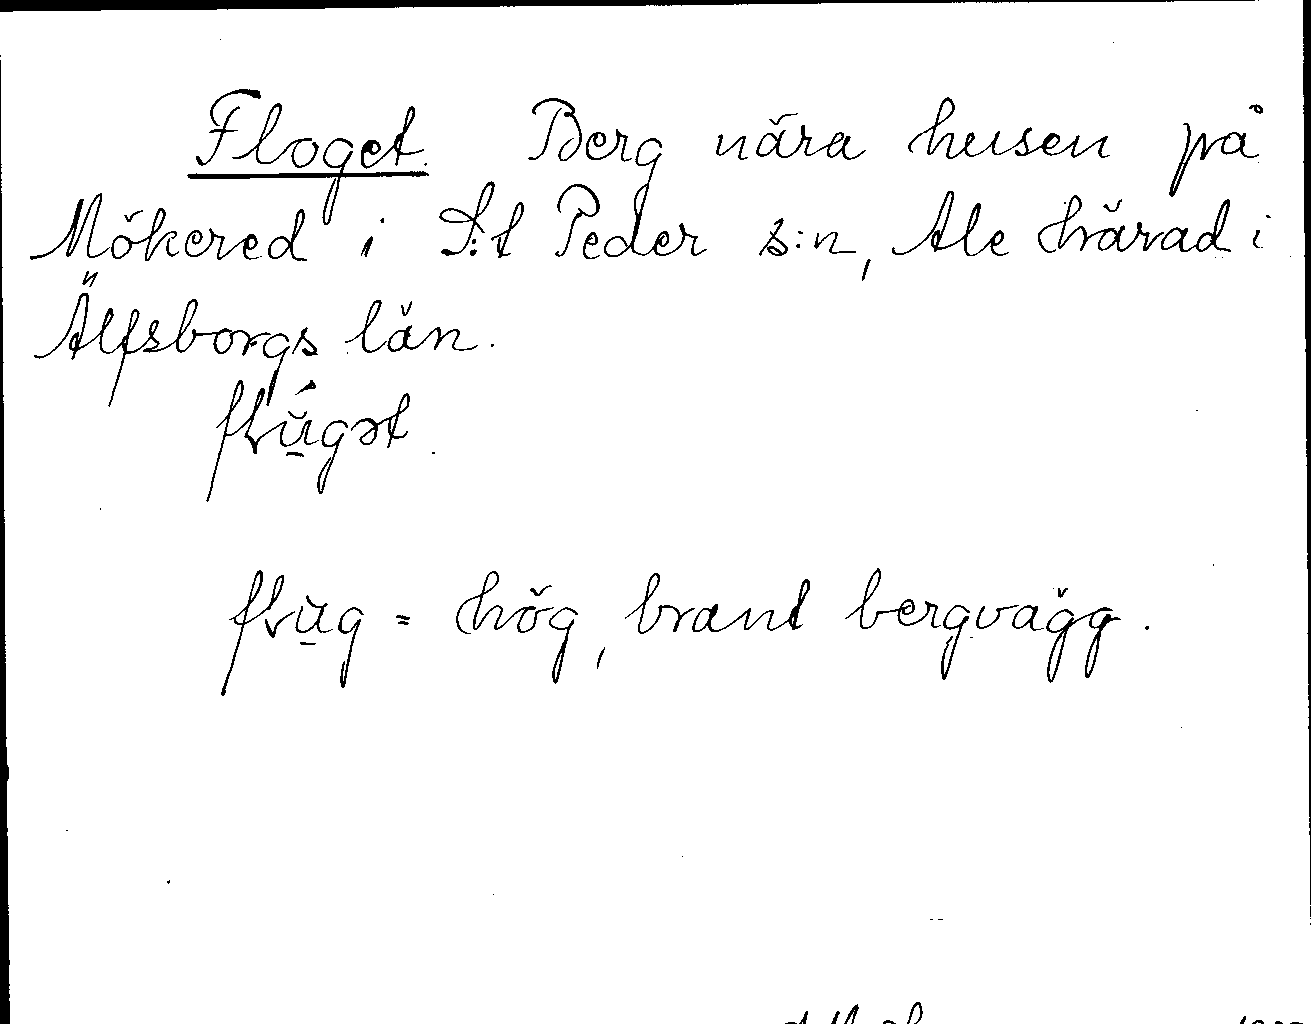 Floget. Berg nära husen på
Mökered i S:t Peder s:n, Ale härad i
Älfsborgs län.
flŭ́gət.
flŭg = hög, brant bergvägg.